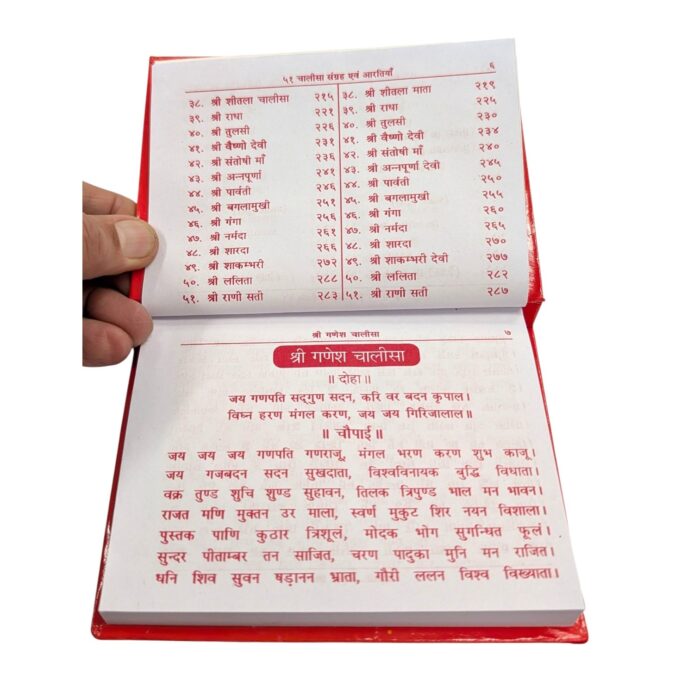 ५१ चालीसा संग्रह एवं आरतियाँ ६
३८. श्री शीतला चालीसा २१५
३९. श्री राधा २२१
४०. श्री तुलसी २२६
४१. श्री वैष्णो देवी २३१
४२. श्री संतोषी माँ २३६
४३. श्री अन्नपूर्णा २४१
४४. श्री पार्वती २४६
४५. श्री बगलामुखी २५१
४६. श्री गंगा २५६
४७. श्री नर्मदा २६१
४८. श्री शारदा २६६
४९. श्री शाकम्भरी २७२
५०. श्री ललिता २८८
५१. श्री राणी सती २८३
३८. श्री शीतला माता २१९
३९. श्री राधा २२५
४०. श्री तुलसी २३०
४१. श्री वैष्णो देवी २३४
४२. श्री संतोषी माँ २४०
४३. श्री अन्नपूर्णा देवी २४५
४४. श्री पार्वती २५०
४५. श्री बगलामुखी २५५
४६. श्री गंगा २६०
४७. श्री नर्मदा २६५
४८. श्री शारदा २७०
४९. श्री शाकम्भरी देवी २७७
५०. श्री ललिता २८२
५१. श्री राणी सती २८७
श्री गणेश चालीसा ७
श्री गणेश चालीसा
॥ दोहा ॥
जय गणपति सद्‌गुण सदन, करि वर बदन कृपाल।
विघ्न हरण मंगल करण, जय जय गिरिजालाल॥
॥ चौपाई ॥
जय जय जय गणपति गणराजू, मंगल भरण करण शुभ काजू।
जय गजबदन सदन सुखदाता, विश्वविनायक बुद्धि विधाता।
वक्र तुण्ड शुचि शुण्ड सुहावन, तिलक त्रिपुण्ड भाल मन भावन।
राजत मणि मुक्तन उर माला, स्वर्ण मुकुट शिर नयन विशाला।
पुस्तक पाणि कुठार त्रिशूलं, मोदक भोग सुगन्धित फूलं।
सुन्दर पीताम्बर तन साजित, चरण पादुका मुनि मन राजित।
धनि शिव सुवन षड़ानन भ्राता, गौरी ललन विश्व विख्याता।